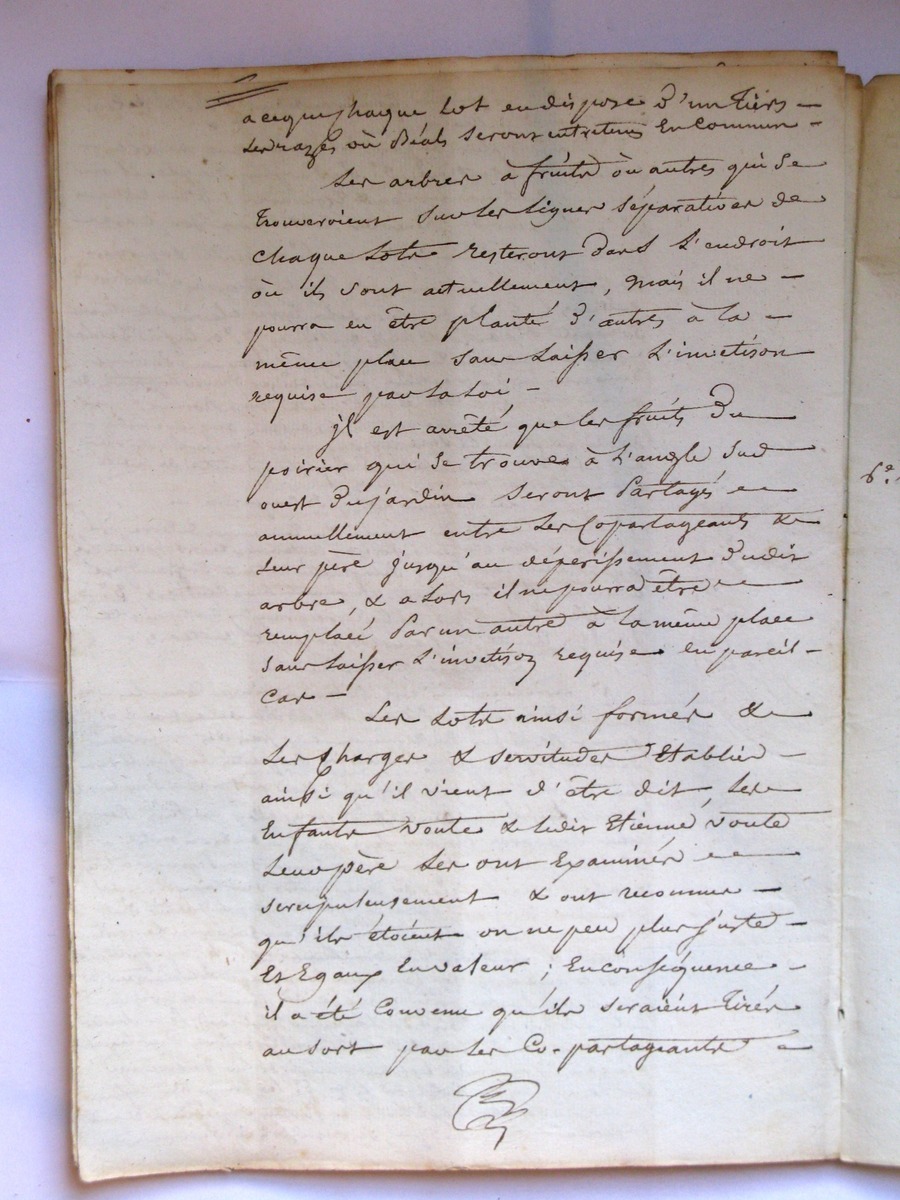 a ceque chaque Lot en dispose d'un tiers -
Les razes où Béals seront entretenus En Commun -
Les arbres à fruits où autres qui se
trouveroient sur les lignes séparatives de
chaque Lots resteront dans L'endroit
où ils sont actuellement, mais il ne -
pourra en être planté d'autres à la -
même place sans Laisser L'invetison
requise par La Loi -
jl est arrêté que les fruits du
poirier qui se trouve à L'angle sud
ouest du jardin seront Partagés
annuellement entre Les Copartageants &
Leur père jusqu'au dépérissement dudit
arbre, & alors il ne pourra être
remplacé Par un autre à la même place
sans Laisser L'invetison requise En pareil -
cas -
Les Lots ainsi formés &
Les Charges & servitudes Etablies -
ainsi qu'il vient d'être dit, Les
Enfants Voute & ledit Etienne Voute
Leur père Les ont Examinés
scrupuleusement & ont reconnu -
qu'ils étoient on ne peu plus juste -
Et Egaux En valeur ; En conséquence -
il a été Convenu qu'ils seraient Tirés
au sort par Les Co-partageants -
6e.